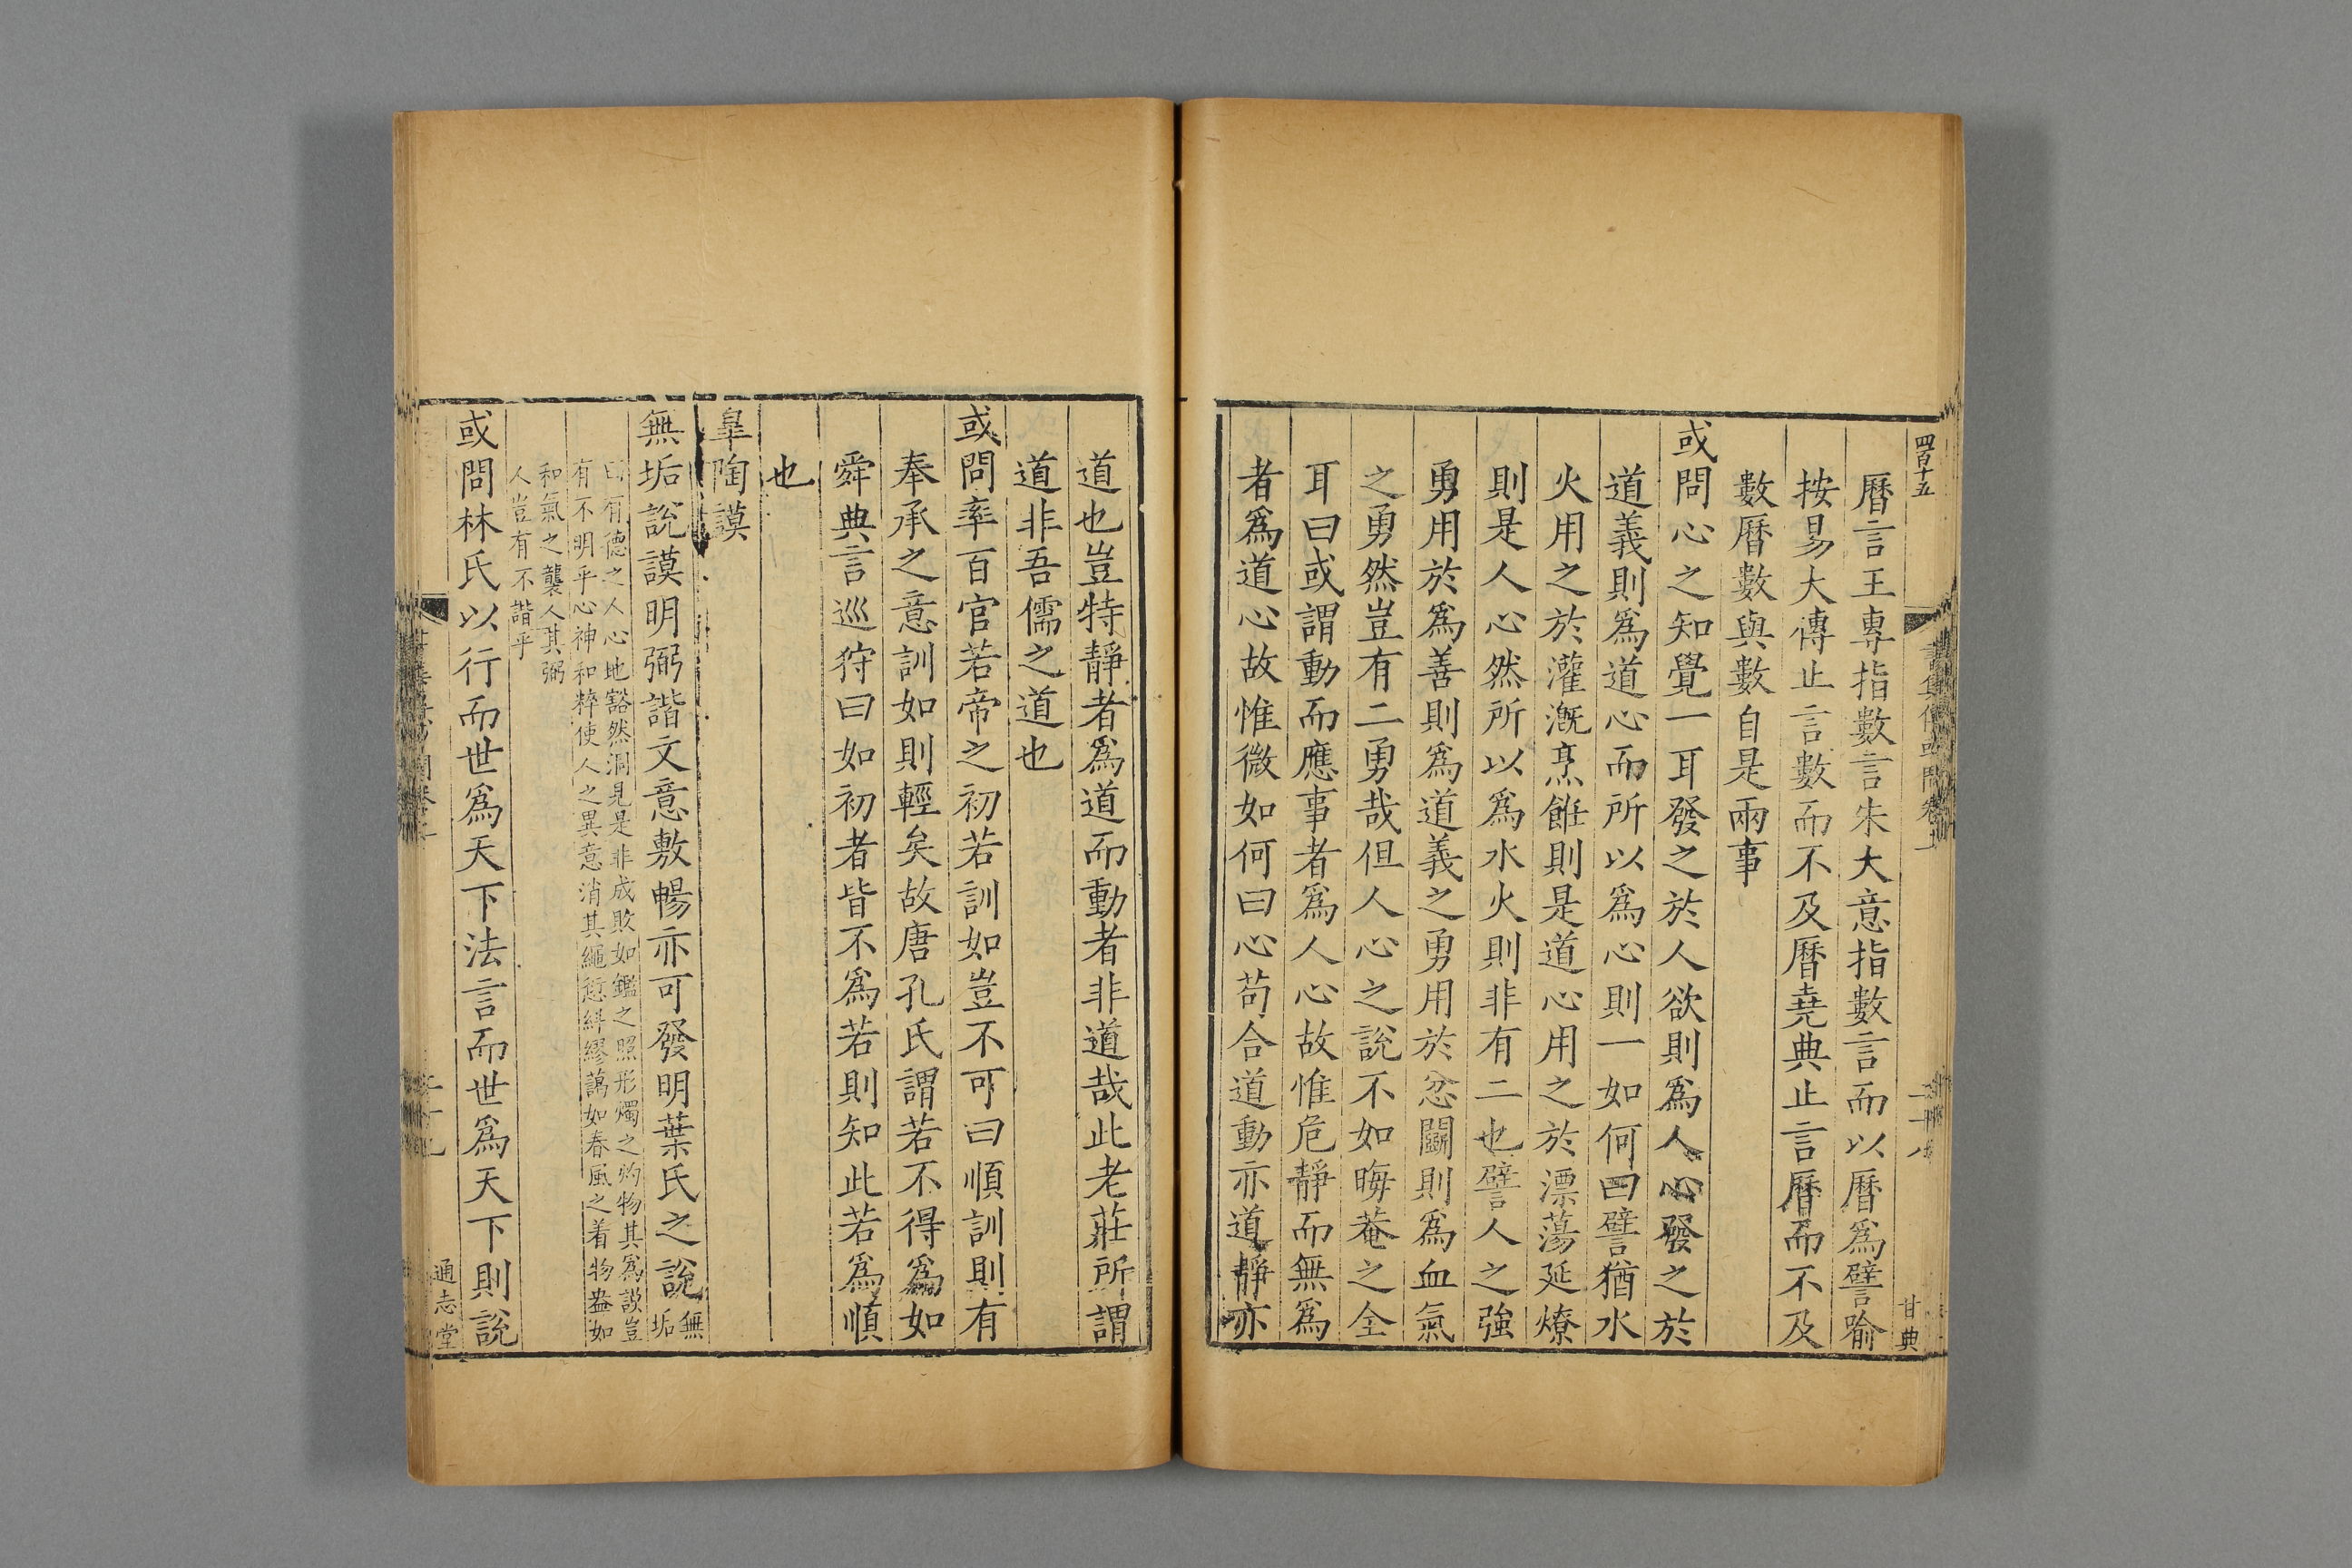 四百十五
甘典
曆言王專指數言朱大意指數言而以曆爲譬喻
按易大傳止言數而不及曆堯典止言曆而不及
數曆數與數自是兩事
或問心之知覺一耳發之於人欲則爲人心發之於
道義則爲道心而所以爲心則一如何曰譬猶水
火用之於灌漑烹飪則是道心用之於漂蕩延燎
則是人心然所以爲水火則非有二也譬人之強
勇用於爲善則爲道義之勇用於忿鬬則爲血氣
之勇然豈有二勇哉但人心之說不如晦菴之全
耳曰或謂動而應事者爲人心故惟危靜而無爲
者爲道心故惟微如何曰心苟合道動亦道靜亦
道也豈特靜者爲道而動者非道哉此老莊所謂
道非吾儒之道也
或問率百官若帝之初若訓如豈不可曰順訓則有
奉承之意訓如則輕矣故唐孔氏謂若不得爲如
舜典言巡狩曰如初者皆不爲若則知此若爲順
也
皐陶謨
無垢說謨明弼諧文意敷暢亦可發明葉氏之說無垢
曰有德之人心地豁然洞見是非成敗如鑑之照形燭之灼物其爲謨豈
有不明乎心神和粹使人之異意消其繩愆糾繆藹如春風之着物盎如
和氣之襲人其弼
人豈有不諧乎
或問林氏以行而世爲天下法言而世爲天下則說
通志堂